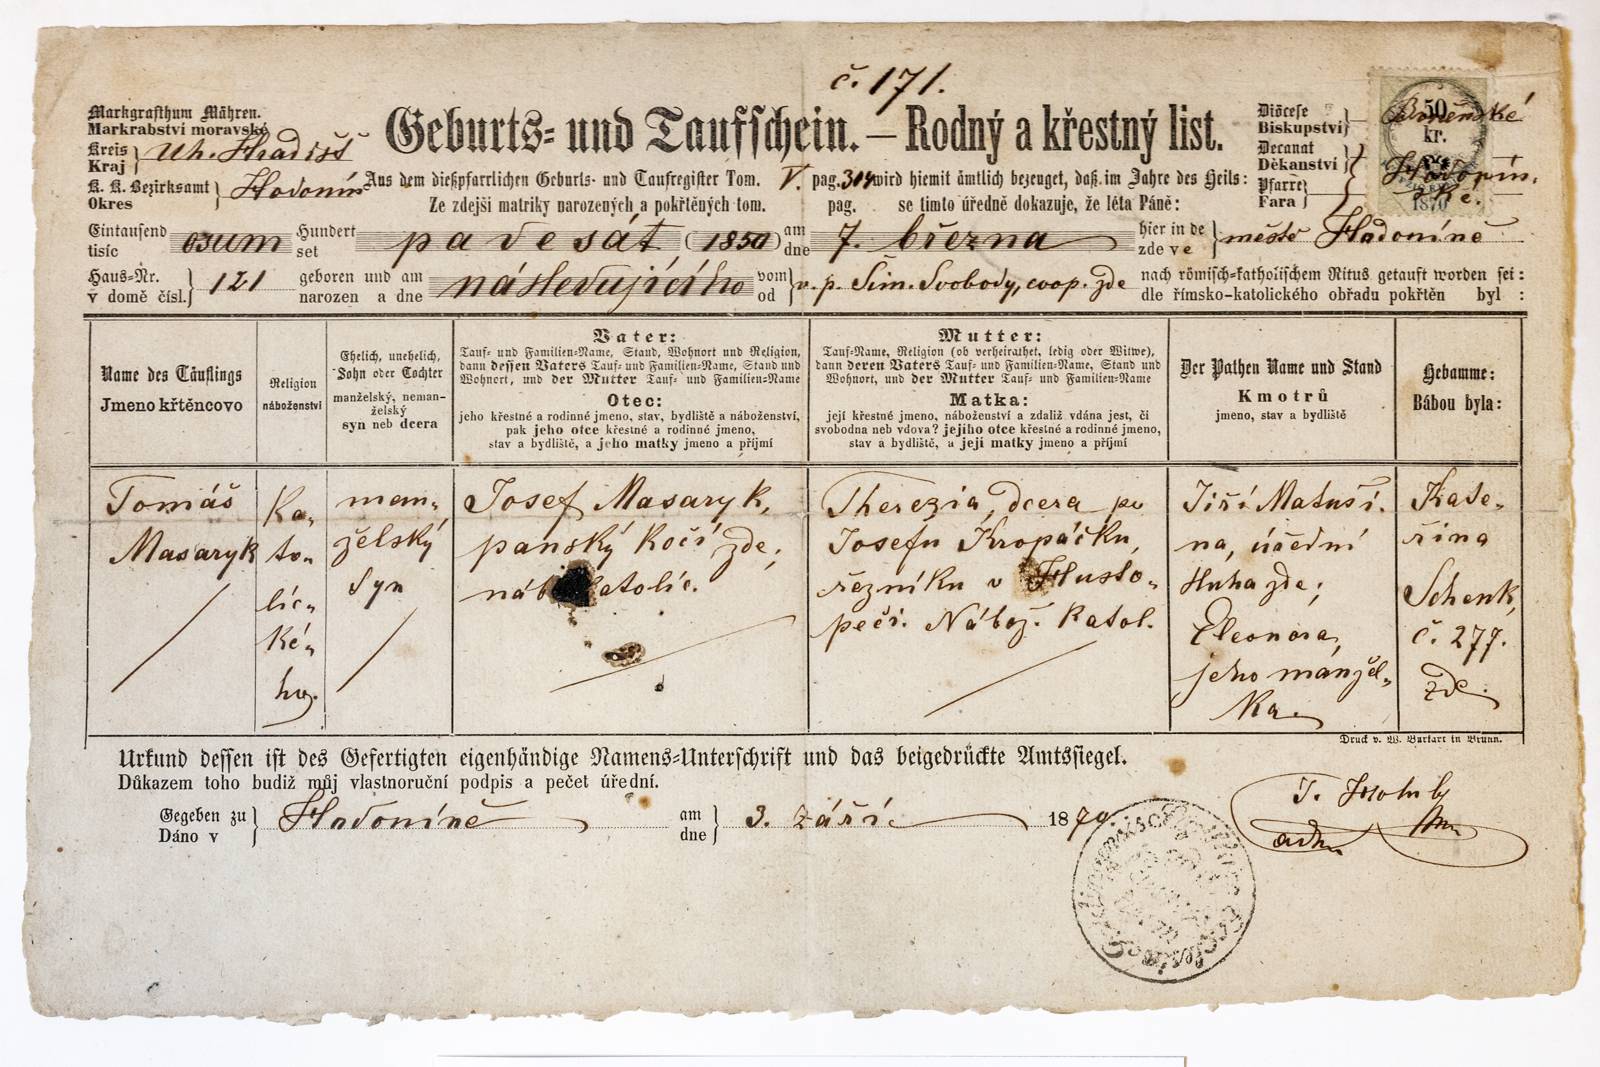 č. 171.
Markgrafthum Mähren.
Markrabství moravské
Kreis
Kraj } Uh. Hradišť
K. K. Bezirksamt
Okres } Hodonín
Geburts= und Taufschein. — Rodný a křestný list.
Diöcese
Biskupství }
Decanat
Děkanství }
Pfarre
Fara }
50
kr.
1870
Aus dem dießpfarrlichen Geburts- und Taufregister Tom. V. pag. 314 wird hiemit ämtlich bezeuget, daß im Jahre des Heils:
Ze zdejší matriky narozených a pokřtěných tom. pag. se tímto úředně dokazuje, že léta Páně:
Eintausend
tisíc osum Hundert
set padesát (1850) am
dne 7. března hier in de
zde v e } městě Hodoníně
Haus=Nr.
v domě čísl. } 121 geboren und am
narozen a dne následujícího vom
od } v. p. Šim. Svobody, coop. zde nach römisch=katholischem Ritus getauft worden sei:
dle římsko-katolického obřadu pokřtěn byl :
Name des Täuflings
Jmeno křtěncovo
Religion
náboženství
Ehelich, unehelich,
Sohn oder Tochter
manželský, neman-
želský
syn neb dcera
Vater:
Tauf= und Familien=Name, Stand, Wohnort und Religion,
dann dessen Vaters Tauf= und Familien=Name, Stand und
Wohnort, und der Mutter Tauf= und Familien=Name
Otec:
jeho křestné a rodinné jmeno, stav, bydliště a náboženství,
pak jeho otce křestné a rodinné jmeno,
stav a bydliště, a jeho matky jmeno a příjmí
Mutter:
Tauf=Name, Religion (ob verheirathet, ledig oder Witwe),
dann deren Vaters Tauf= und Familien=Name, Stand und
Wohnort, und der Mutter Tauf= und Familien=Name
Matka:
její křestné jmeno, náboženství a zdaliž vdána jest, či
svobodna neb vdova? jejího otce křestné a rodinné jmeno,
stav a bydliště, a její matky jmeno a příjmí
Der Pathen Name und Stand
Kmotrů
jmeno, stav a bydliště
Hebamme:
Bábou byla:
Tomáš
Masaryk
Ka„
to„
lic„
ké„
ho.
man„
želský
syn
Josef Masaryk,
panský kočí zde;
náb atolic.
Therezia, dcera po
Josefu Kropáčku,
řezníku v Husto„
peči. Nábož. katol.
Jiří Matuši„
na, úřední
sluha zde;
Eleonora,
jeho manžel„
ka.
Kate„
řina
Schenk,
č. 277.
zde.
Druck v. W. Burkart in Brünn.
Urkund dessen ist des Gefertigten eigenhändige Namens=Unterschrift und das beigedrückte Amtssiegel.
Důkazem toho budiž můj vlastnoruční podpis a pečet úřední.
Gegeben zu
Dáno v } Hodoníně am
dne } 3. září 1870.
T. Holuby